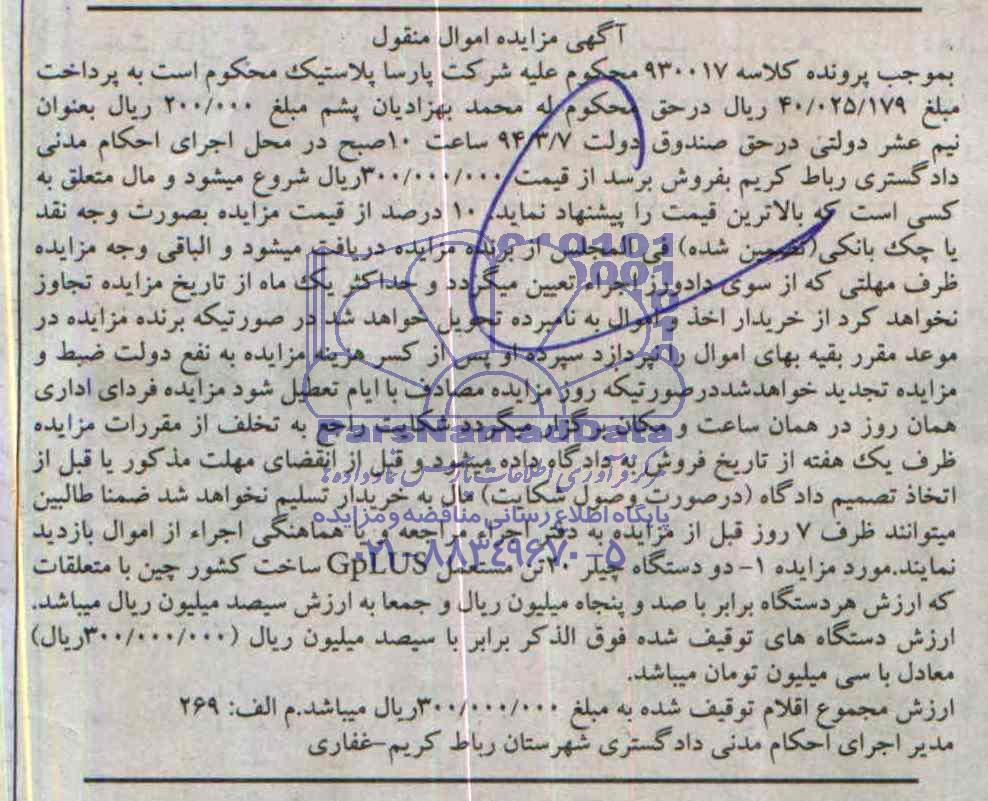 آگهی مزایده اموال منقول
بموجب پرونده کلاسه ۹۳۰۰۱۷ محکوم علیه شرکت پارسا پلاستیک محکوم است به پرداخت
مبلغ ۴۰/۰۲۵/۱۷۹ ریال درحق محکوم له محمد بهزادیان پشم مبلغ ۲۰۰/۰۰۰ ریال بعنوان
نیم عشر دولتی درحق صندوق دولت ۹۴/۳/۷ ساعت ۱۰صبح در محل اجرای احکام مدنی
دادگستری رباط کریم بفروش برسد از قیمت ۳۰۰/۰۰۰/۰۰۰ریال شروع میشود و مال متعلق به
کسی است که بالاترین قیمت را پیشنهاد نماید. ۱۰ درصد از قیمت مزایده بصورت وجه نقد
یا چک بانکی(تضمین شده) فی المجلس از برنده مزایده دریافت میشود و الباقی وجه مزایده
ظرف مهلتی که از سوی دادورز اجراء تعیین میگردد و حداکثر یک ماه از تاریخ مزایده تجاوز
نخواهد کرد از خریدار اخذ و اموال به نامبرده تحویل خواهد شد در صورتیکه برنده مزایده در
موعد مقرر بقیه بهای اموال را نپردازد سپرده او پس از کسر هزینه مزایده به نفع دولت ضبط و
مزایده تجدید خواهدشددرصورتیکه روز مزایده مصادف با ایام تعطیل شود مزایده فردای اداری
همان روز در همان ساعت و مکان برگزار میگردد شکایت راجع به تخلف از مقررات مزایده
ظرف یک هفته از تاریخ فروش به دادگاه داده میشود و قبل از انقضای مهلت مذکور یا قبل از
اتخاذ تصمیم دادگاه (درصورت وصول شکایت) مال به خریدار تسلیم نخواهد شد ضمنا طالبین
میتوانند ظرف ۷ روز قبل از مزایده به دفتر اجراء مراجعه و با هماهنگی اجراء از اموال بازدید
نمایند.مورد مزایده ۱- دو دستگاه چیلر ۲۰تن مستعمل GpLUS ساخت کشور چین با متعلقات
که ارزش هردستگاه برابر با صد و پنجاه میلیون ریال و جمعا به ارزش سیصد میلیون ریال میباشد.
ارزش دستگاه های توقیف شده فوق الذکر برابر با سیصد میلیون ریال (۳۰۰/۰۰۰/۰۰۰ریال)
معادل با سی میلیون تومان میباشد.
ارزش مجموع اقلام توقیف شده به مبلغ ۳۰۰/۰۰۰/۰۰۰ریال میباشد.م الف: ۲۶۹
مدیر اجرای احکام مدنی دادگستری شهرستان رباط کریم-غفاری
ParsNamadData
پایگاه اطلاع رسانی مناقصه و مزایده
۰۲۱-۸۸۳۴۹۶۷۰-۵